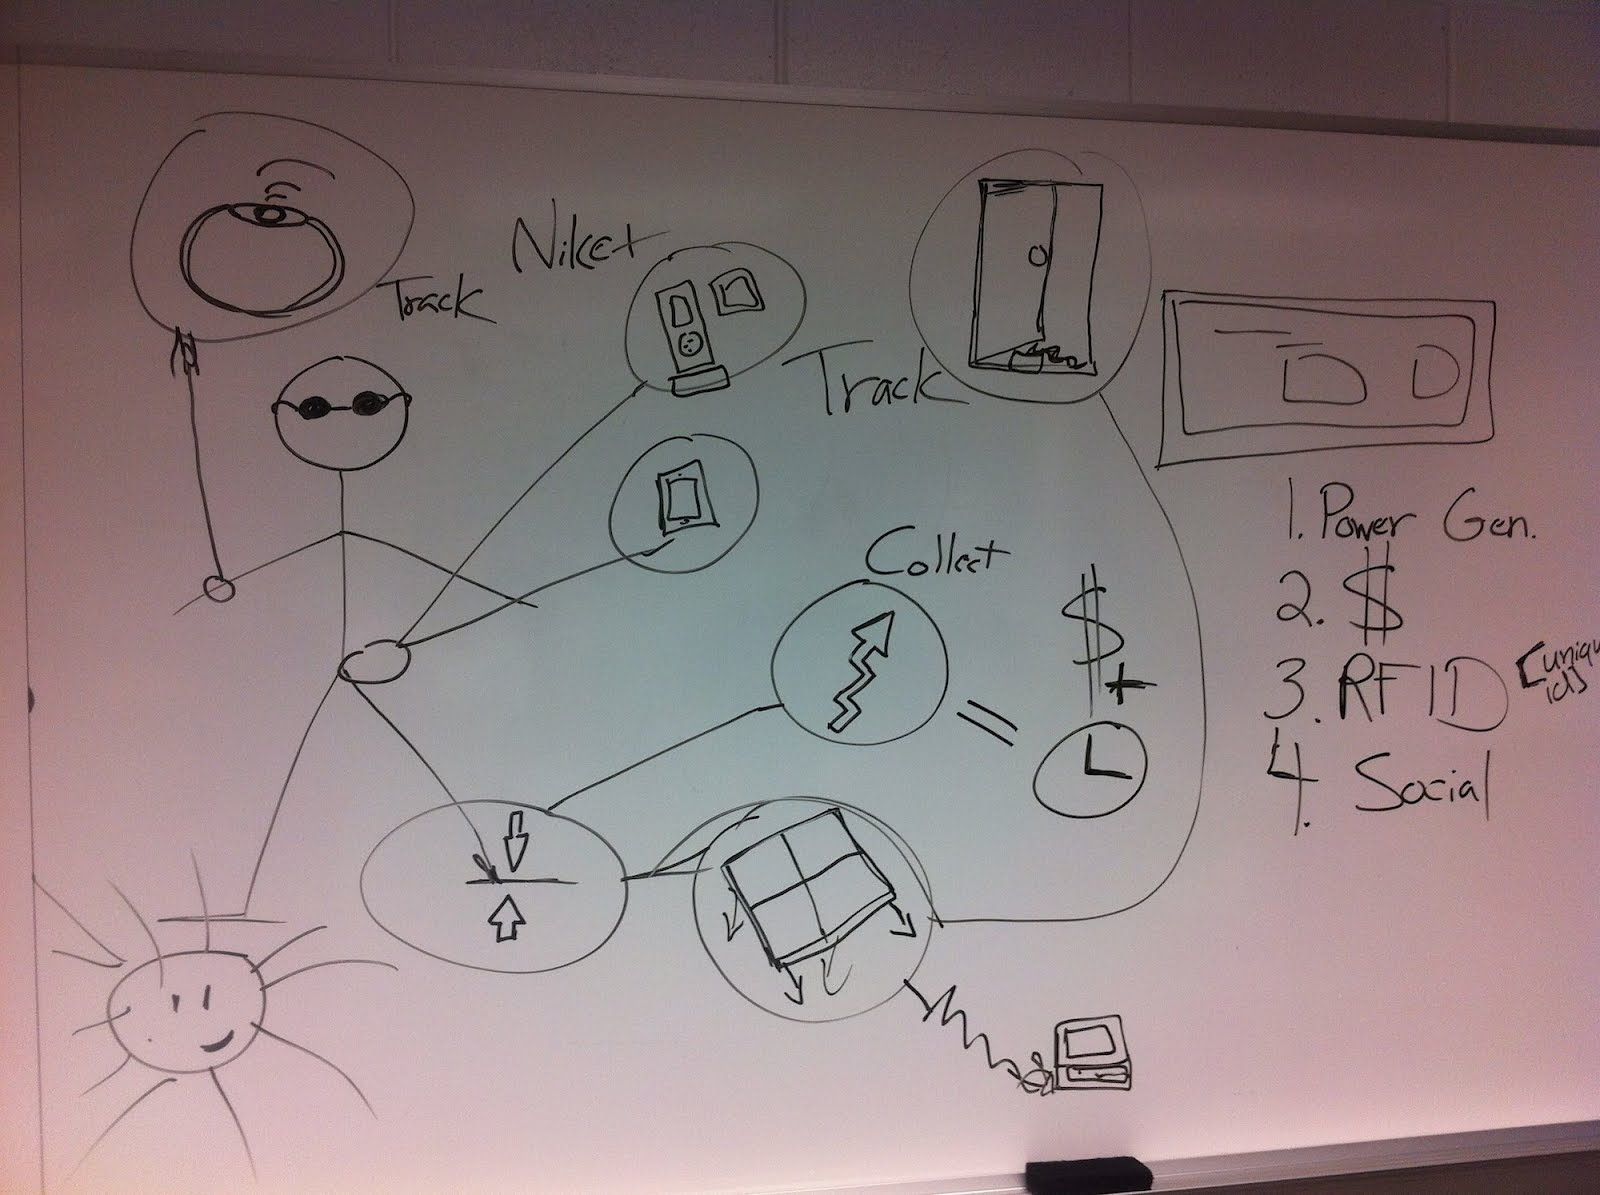 Nike+
Track
Track
Collect
$
+
=
1. Power Gen.
2. $
3. RFID [uniqu
ids
4. Social